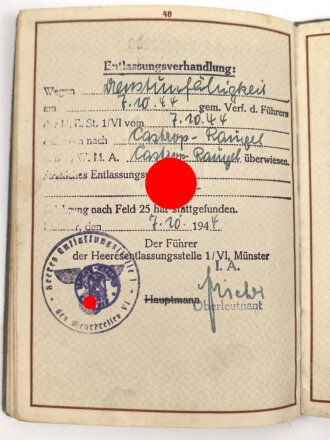 48
Entlassungsverhandlung:
Wegen Dienstunfähigkeit
am 7.10.44 gem. Verf. d. Führers
d. H. E. St. 1/VI vom 7.10.44
nach Castrop-Rauxel
W. M. A. Castrop-Rauxel überwiesen.
Ärztliches Entlassungs
nach Feld 25 hat stattgefunden.
, den 7.10. 1944
Der Führer
der Heeresentlassungsstelle 1/VI, Münster
I. A.
Hauptmann
Oberleutnant
Heeres Entlassungsstelle 1
des Wehrkreises VI